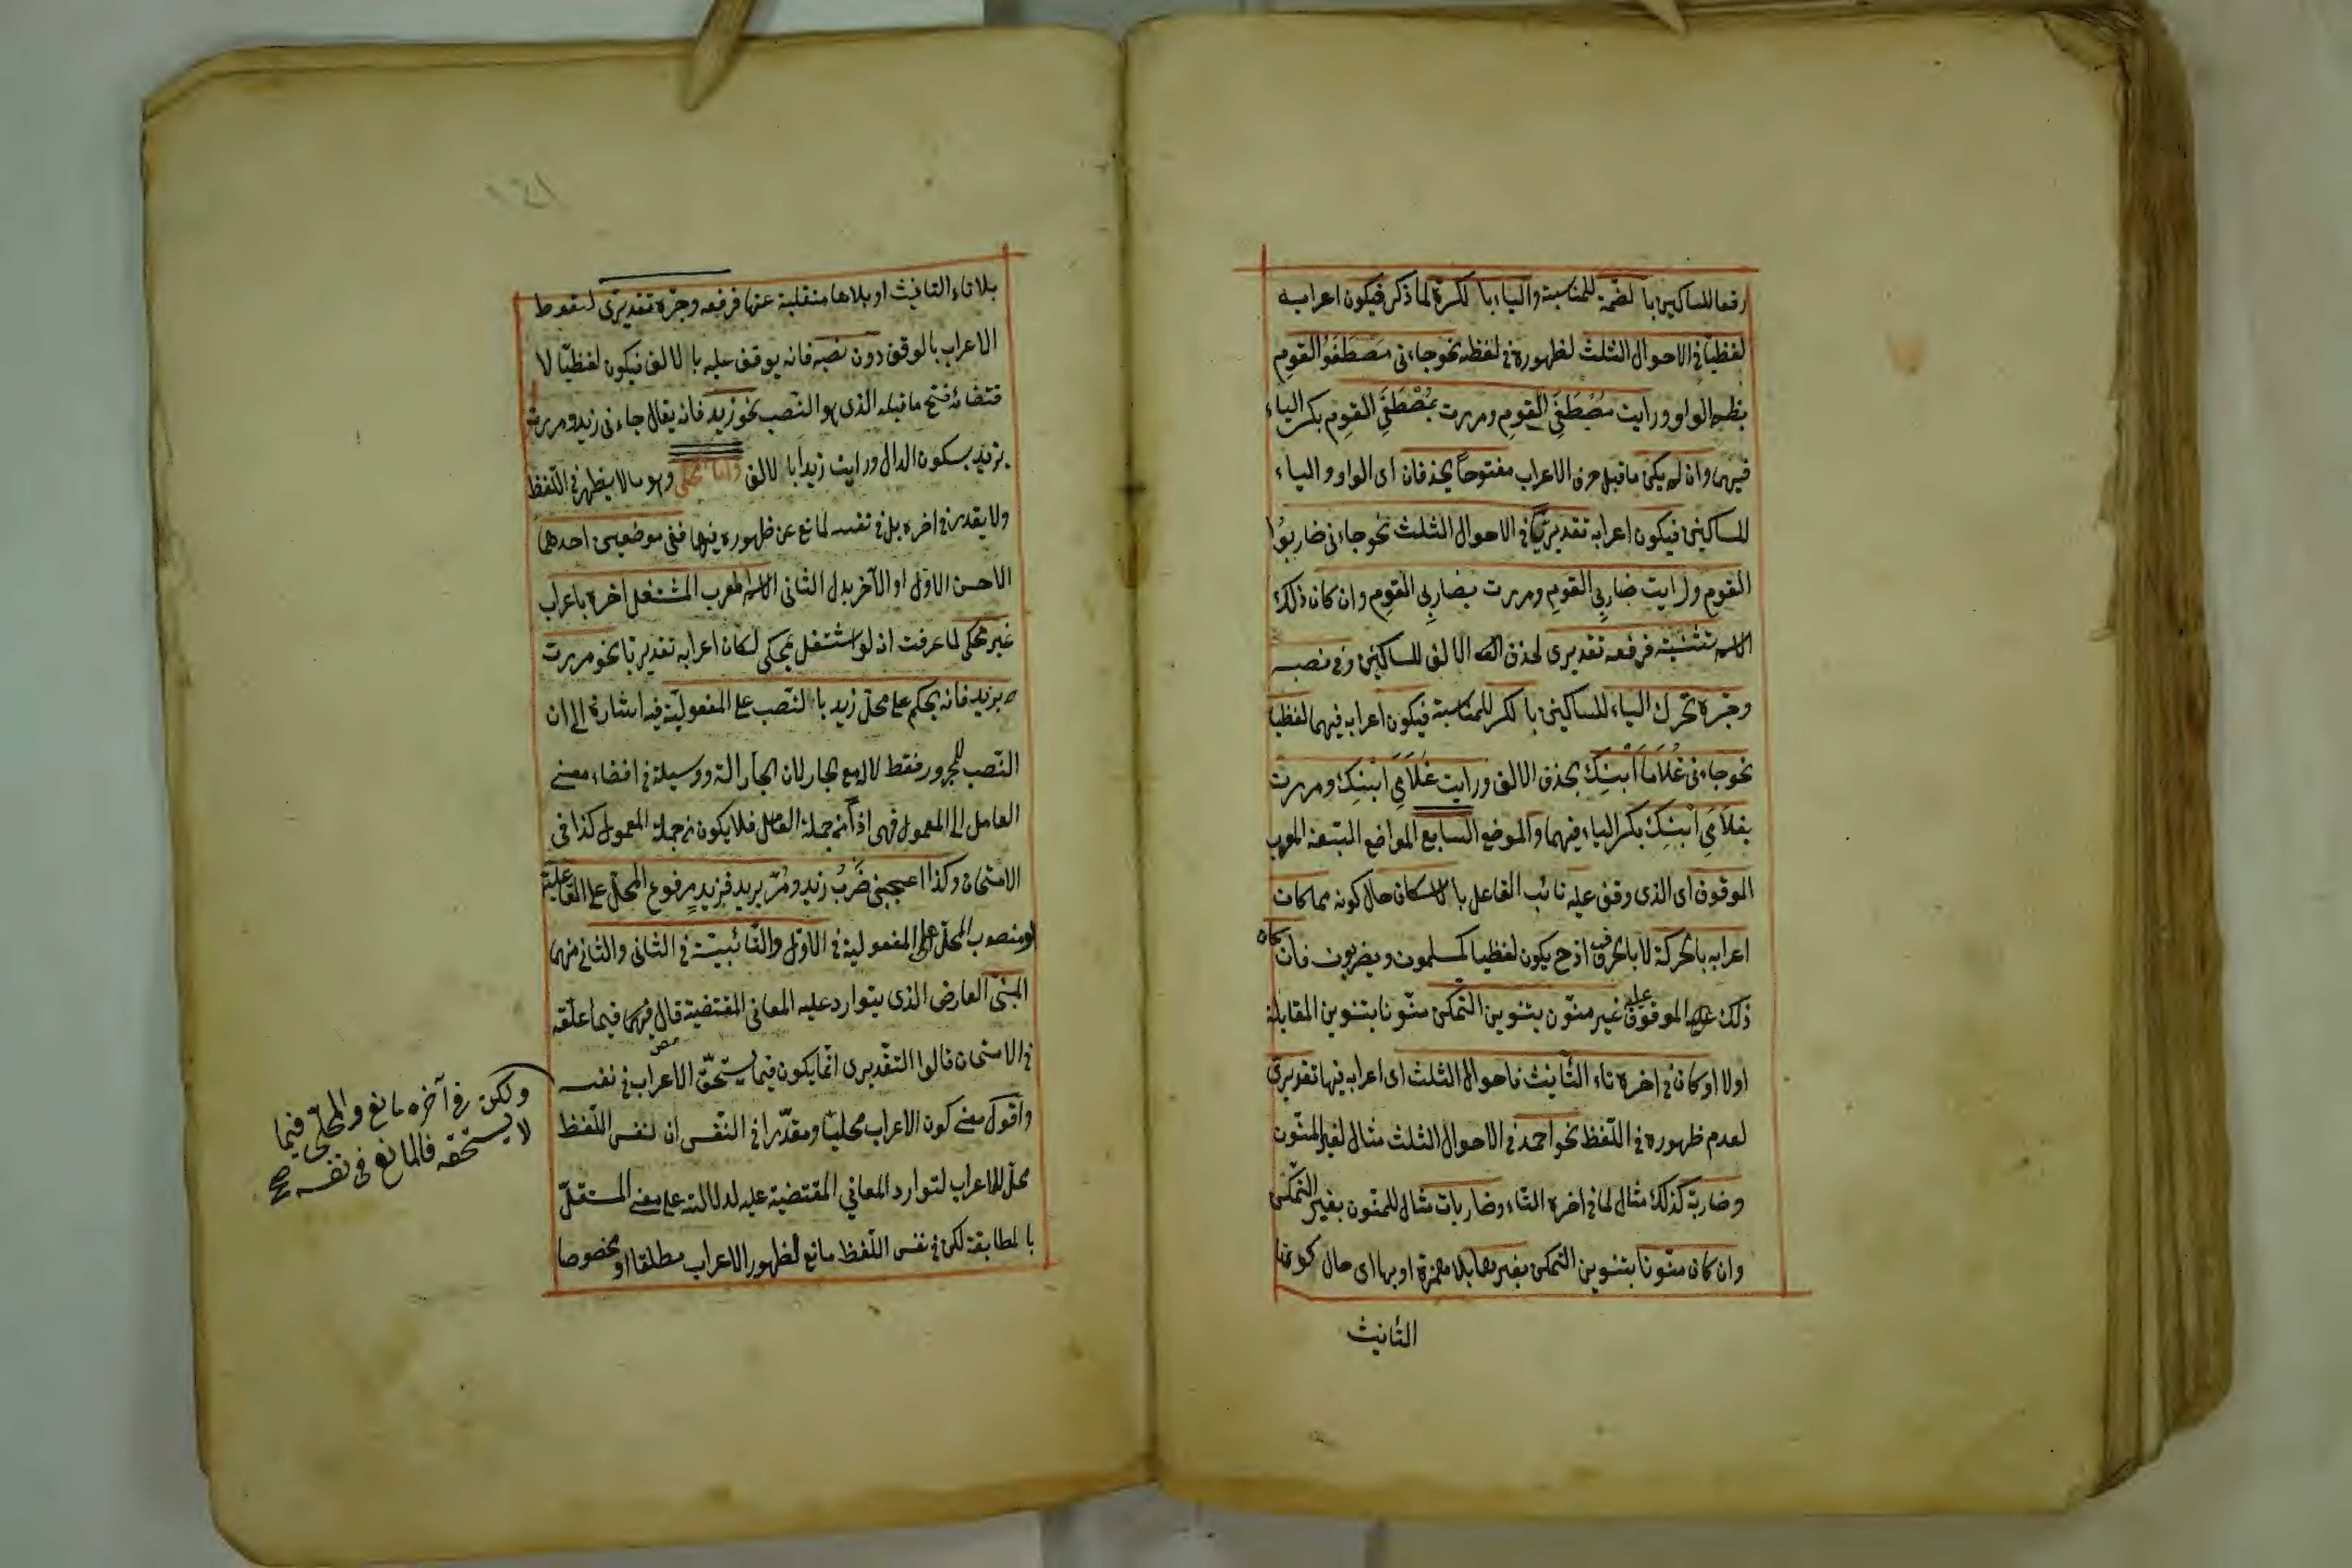 رفعا للساكنين بالضمة للمناسبة والياء بالكسرة لما ذكر فيكون اعرابه
لفظيا في الاحوال الثلث لظهوره في لفظه نحو جاءني مُصْطَفَوُ القوم
بضم الواو ورايت مُصْطَفَيِ القومِ ومررت بمُصْطَفَيِ القومِ بكسر الياء
فيهما وان لم يكن ماقبل حرف الاعراب مفتوحا يحذفان اى الواو والياء
للساكنين فيكون اعرابه تقديريًّا في الاحوال الثلث نحو جاءني ضاربُوا
القوم ورايت ضاربِي القوم ومررت بضاربِي القوم وان كان ذلك
الاسم تثنية فرفعه تقديرى لحذف الالف للساكنين وفي نصبه
وجره تحرك الياء للساكنين بالكسر للمناسبة فيكون اعرابه فيهما لفظيا
نحو جاءني غُلَامَا ابْنِكَ بحذف الالف ورايت غلَامَيِ ابْنِكَ ومررت
بغلَامَيِ ابْنِكَ بكسر الياء فيهما والموضع السابع المواضع السبعة المعرب
الموقوف اى الذى وقف عليه نائب الفاعل بالاسكان حال كونه مما كان
اعرابه بالحركة لا بالحرف اذ ح يكون لفظيا كمسلمون ويضربون فان كان
ذلك الموقوف عليه غير منون بتنوين التمكن منونا بتنوين المقابلة
اولا او كان في اخره تاء التأنيث فاحواله الثلث اى اعرابه فيها تقديرى
لعدم ظهوره في اللفظ نحو احمد في الاحوال الثلث مثال لغير المنون
وضاربة كذلك مثال لما في اخره التاء وضاربات مثال للمنون بغير التمكن
وان كان منونا بتنوين التمكن بغير همزة او بها اى حال كونها
التانيث
بلا تاء التانيث او بلاها منقلبة عنها فرفعه وجره تقديرى لسقوط
الاعراب بالوقف دون نصبه فانه يوقف عليه بالالف فيكون لفظيا لا
قتضائه فتح ماقبله الذى هو النصب نحو زيد فانه يقال جاءني زيد ومررت
بزيد بسكون الدال ورايت زيدا بالالف واما محلى وهو ما لا يظهر في اللفظ
ولا يقدر في اخره بل في نفسه لمانع عن ظهوره فيها ففي موضعين احدهما
الاحسن الاول او الآخر بدل الثاني الاسم المعرب المشتغل اخره باعراب
غير محكى لما عرفت انه لو اشتغل بمحكى لكان اعرابه تقديريا نحو مررت
بزيد فانه يحكم على محل زيد بالنصب على المفعولية فيه اشارة الى ان
النصب للمجرور فقط لا له مع الجار لان الجار الة ووسيلة في افضاء معنى
العامل الى المعمول فهى اذًا من جملة العامل فلا يكون من جملة المعمول كذا في
الامتحان وكذا اعجبنى ضَرْبُ زيد ومُرَّ بزيد فزيدٍ مرفوع المحل على الفاعلية
ومنصوب المحل على المفعولية في الاول والنائبية في الثانى والثاني منهما
المبنى العارض الذى يتوارد عليه المعانى المقتضية قال فيما علقه
في الامتحان قالوا التقديرى انما يكون فيما يستحق الاعراب في نفسه
واقول معنى كون الاعراب محليا ومقدرا في النفس ان لنفس اللفظ
محل للاعراب لتوارد المعاني المقتضية عليه لدلالته على معنى المستقل
بالمطابقة لكن في نفس اللفظ مانع لظهور الاعراب مطلقا او بخصوصا
ولكن في آخره مانع والمحلى فيما
لا يستحقه فالمانع في نفسه صح